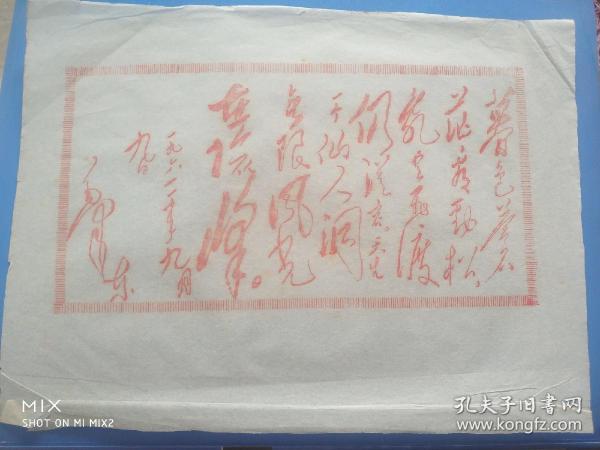 暮色苍
茫看劲松，
乱云飞渡
仍从容。天生
一个仙人洞
无限风光
在险峰。
一九六一年九月
九日
毛泽东
MIX
SHOT ON MI MIX2
孔夫子旧书网
www.kongfz.com